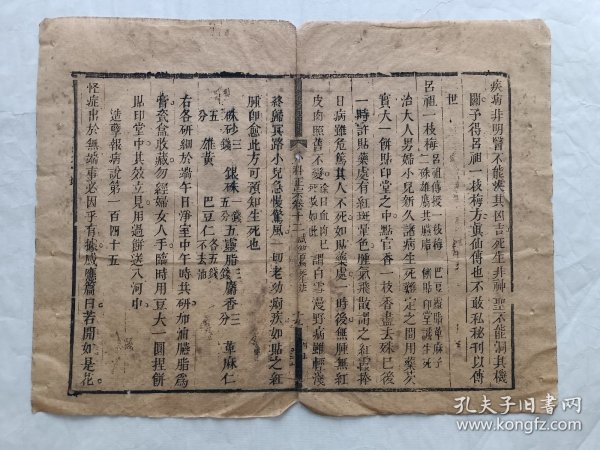 疾病非明醫不能決其凶吉死生非神聖不能洞其機
關予得呂祖一枝梅方真仙傳也不敢私秘刊以傳
世
呂祖一枝梅 呂祖傳授一枝梅 巴豆銀脂蓖麻子
二硃雄麝共臙脂 餅貼印堂識生死
治大人男婦小兒新久諸病生死難定之間用藥芡
實大一餅貼印堂之中點官香一枝香盡去殊已後
一時許貼藥處有紅斑暈色腫氣飛散謂之紅霞捧
日病雖危篤其人不死如貼藥處一時後無腫無紅
皮肉照舊不變 謂白雲漫野病雖輕淺
終歸冥路小兒急慢驚風一切老幼痢疾如貼之紅
腫即愈此方可預知生死也
硃砂三錢 銀硃一錢五分 五靈脂三錢 麝香三分 蓖麻仁五分
雄黃 巴豆仁五錢不去油
右各研細於端午日淨室中午時共研加油臙脂爲
膏瓷盒收藏勿經婦女人手臨時用豆大一圓捏餅
貼印堂中其效立見用過餅送入河中
造孽報病說第一百四十五
怪症出於無端事必因乎有據感應篇曰若聞如是花
孔夫子旧书网
www.kongfz.com